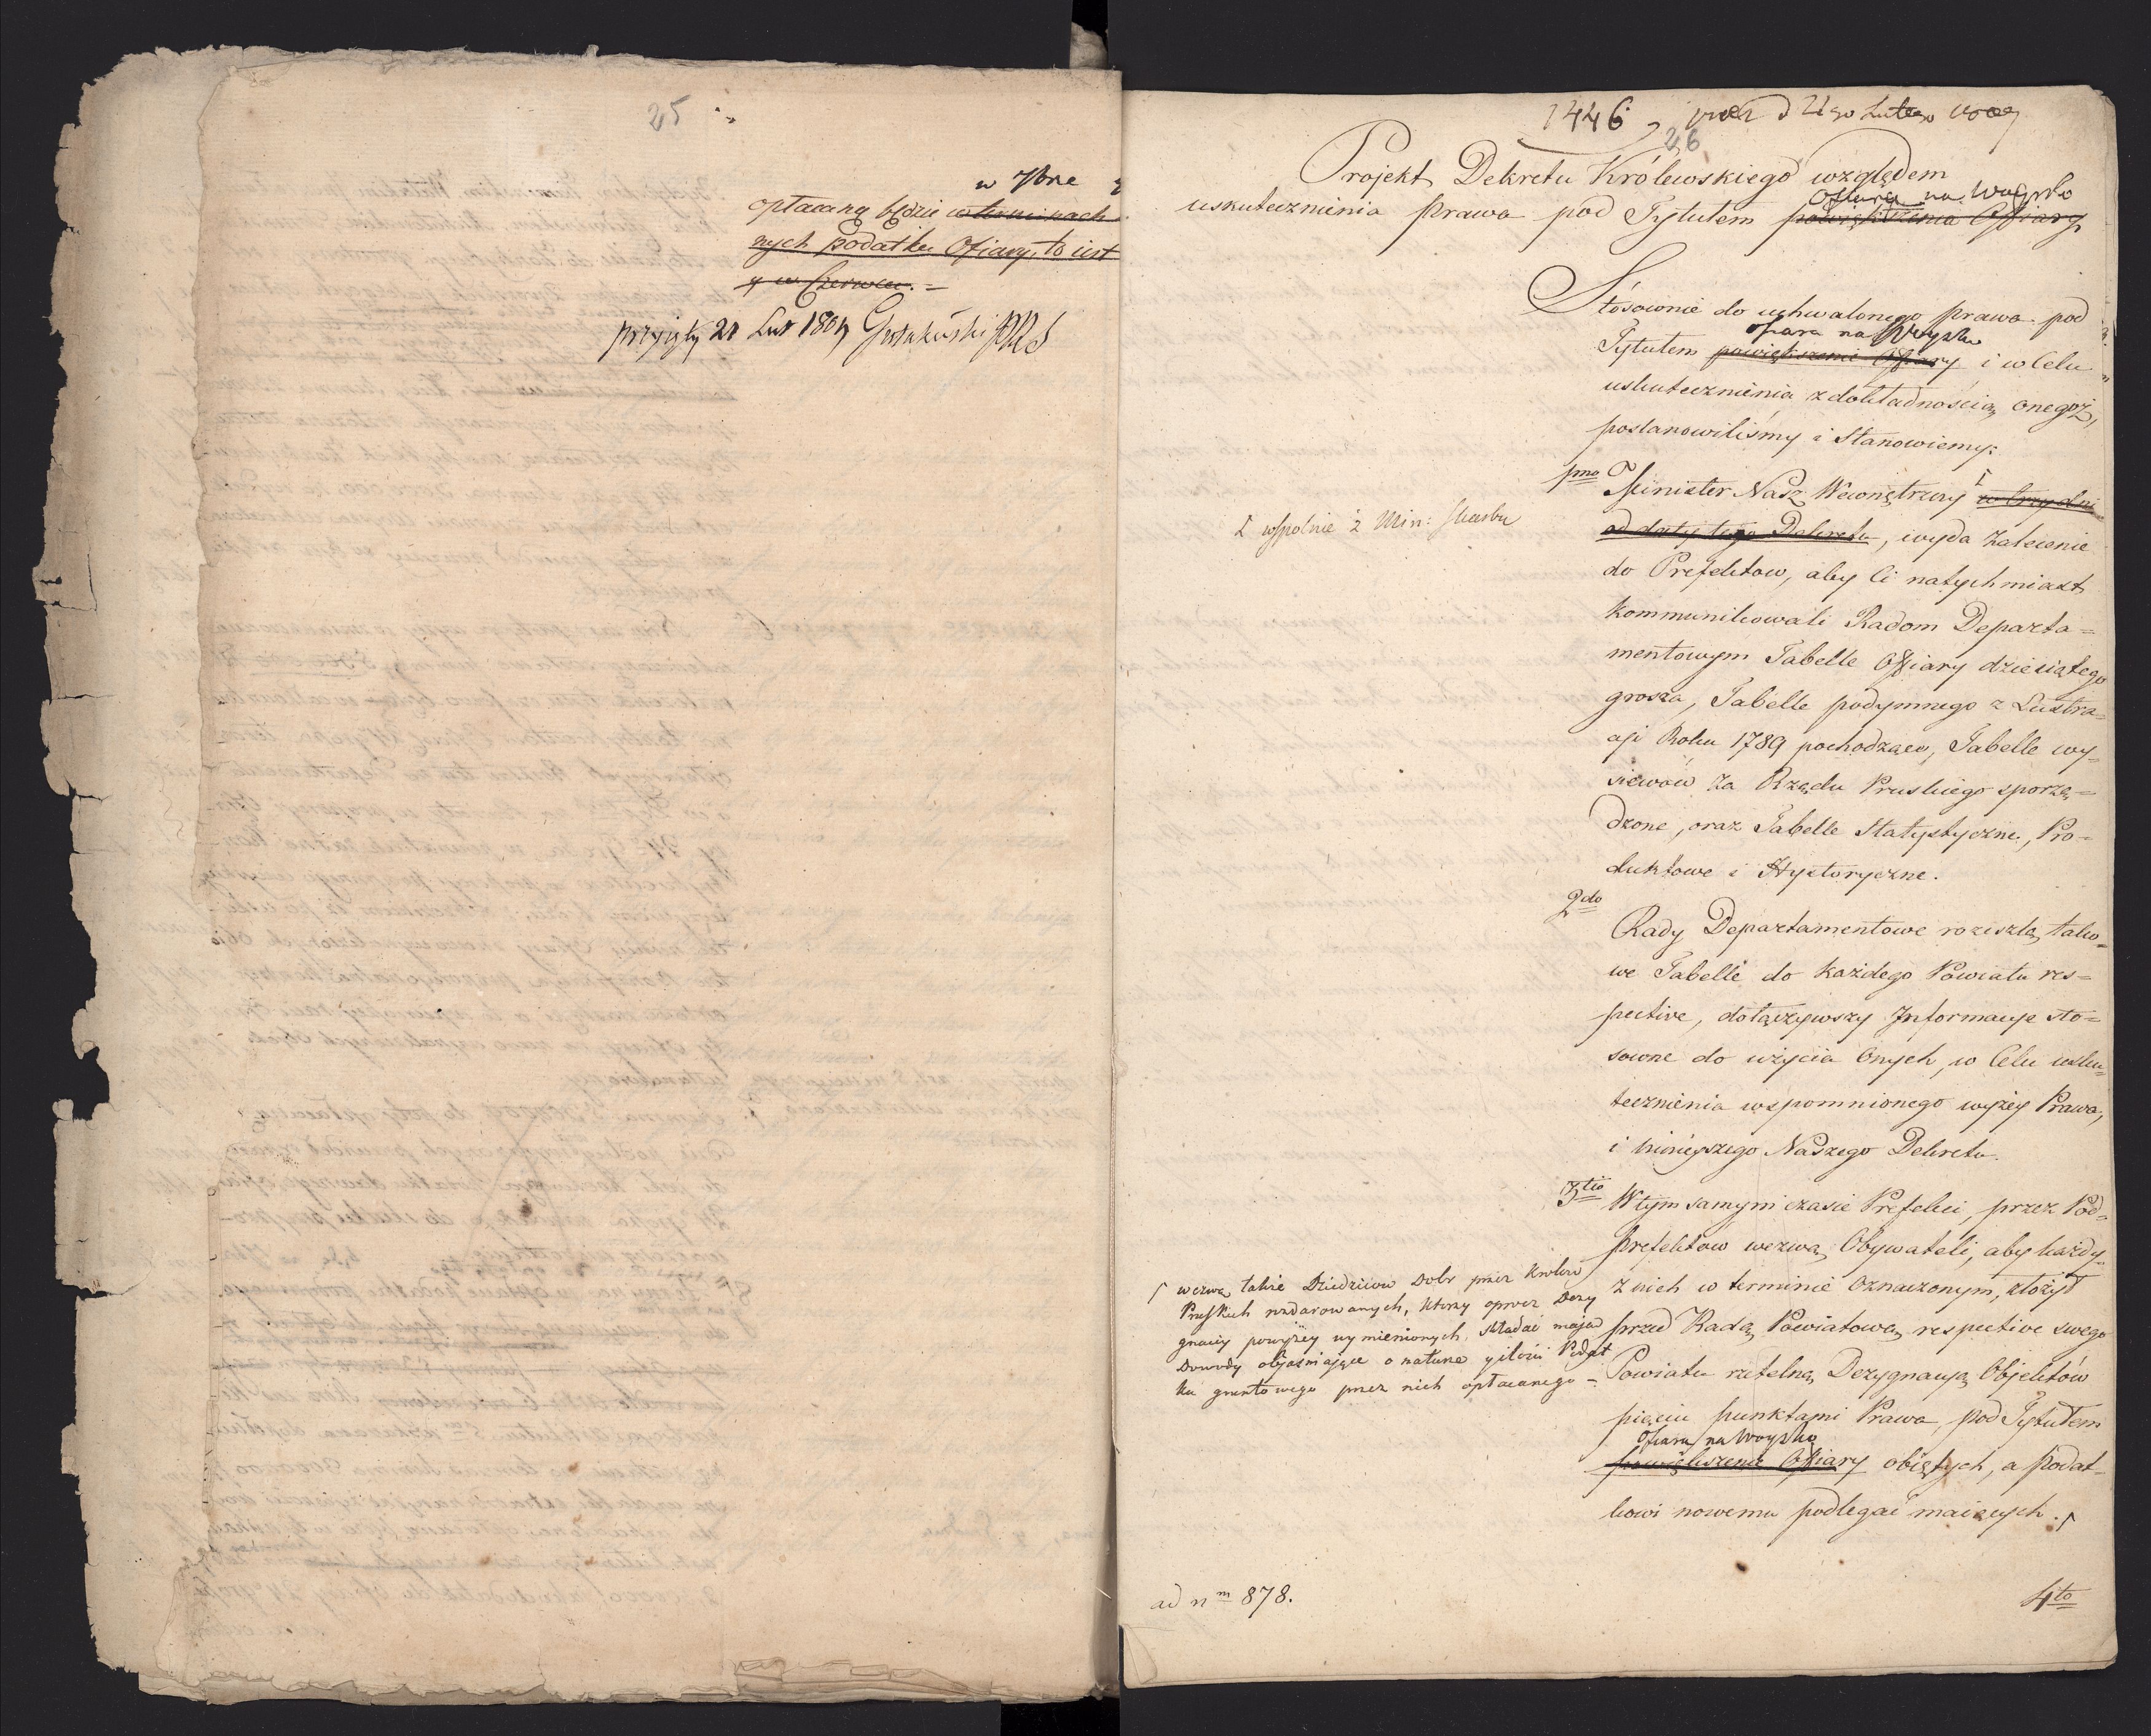 25
w 7bre
opłacaną będzie w terminach
nych podatku Ofiary, to iest
y w Czerwcu. =
przyięty 21 Lut 1809
1446
d 21go Lutego
26
Projekt Dekretu Królewskiego względem
Ofiara na Woysko
uskutecznienia Prawa pod Tytułem powiększenia Ofiary
Stósownie do uchwalonego Prawa pod
ofiara na Woysko
Tytułem powiększenie Ofiary i w Celu
uskutecznienia z dokładnością onegoż,
postanowiliśmy i Stanowiemy:
pmo Minister Nasz Wewnętrzny w trzy dni
wspolnie z Min: Skarbu
od daty tego Dekretu, wyda Zalecenie
do Prefektow, aby Ci natychmiast
kommunikowali Radom Departa=
mentowym Tabelle Ofiary dziesiątego
grosza, Tabelle podymnego z Lustra=
cyi Roku 1789 pochodzące, Tabelle wy=
siewów za Rządu Pruskiego sporzą=
dzone, oraz Tabelle Statystyczne, Pro=
duktowe i Hystoryczne.
2do
Rady Departamentowe rozeszlą tako=
we Tabelle do każdego Powiatu res=
pective, dołączywszy Informacye sto=
sowne do użycia Onych, w Celu usku=
tecznienia wspomnionego wyżey Prawa,
i ninieyszego Naszego Dekretu.
3tio W tym samym czasie Prefekci, przez Pod=
prefektow wezwą Obywateli, aby każdy
z nich w terminie Oznaczonym, złożył
przed Radą Powiatową respective swego
Powiatu rzetelną Dezygnacyą Objektów
pięciu punktami Prawa, pod Tytułem
Ofiara na Woysko
powiększenie Ofiary obiętych, a Podat=
kowi nowemu podlegać maiących.
wezwą także Dziedziców Dobr przez Krolów
Pruskich nadarowanych, ktorzy oprocz Dezy
gnacyi powyżey wymienionych, składać maią
Dowody obiaśniaiące o naturze y ilości Podat
ku gruntowego przez nich opłacanego =
ad nm 878.
4to